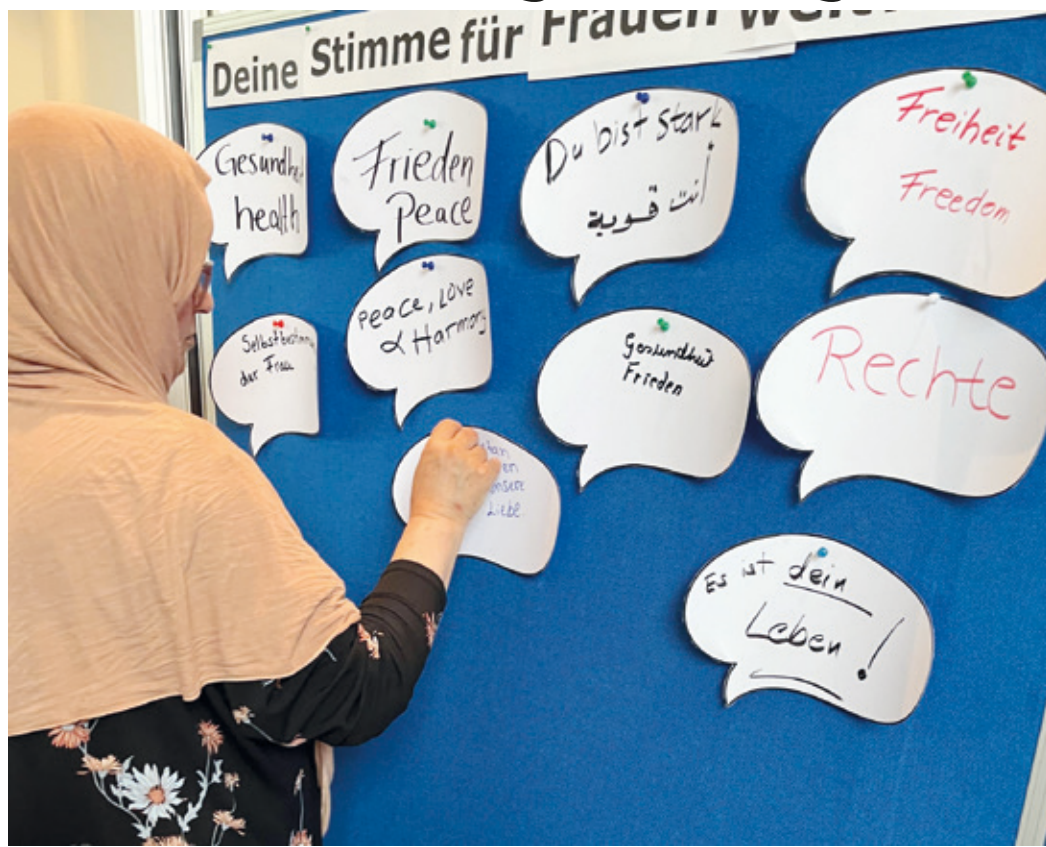 Deine Stimme für Frauen
Gesundheit
health
Frieden
Peace
Du bist stark
أنت قوية
Freiheit
Freedom
Selbstbestimm
der Frau
Peace, Love
& Harmony
Gesundheit
Frieden
Rechte
Liebe.
Es ist dein
Leben!